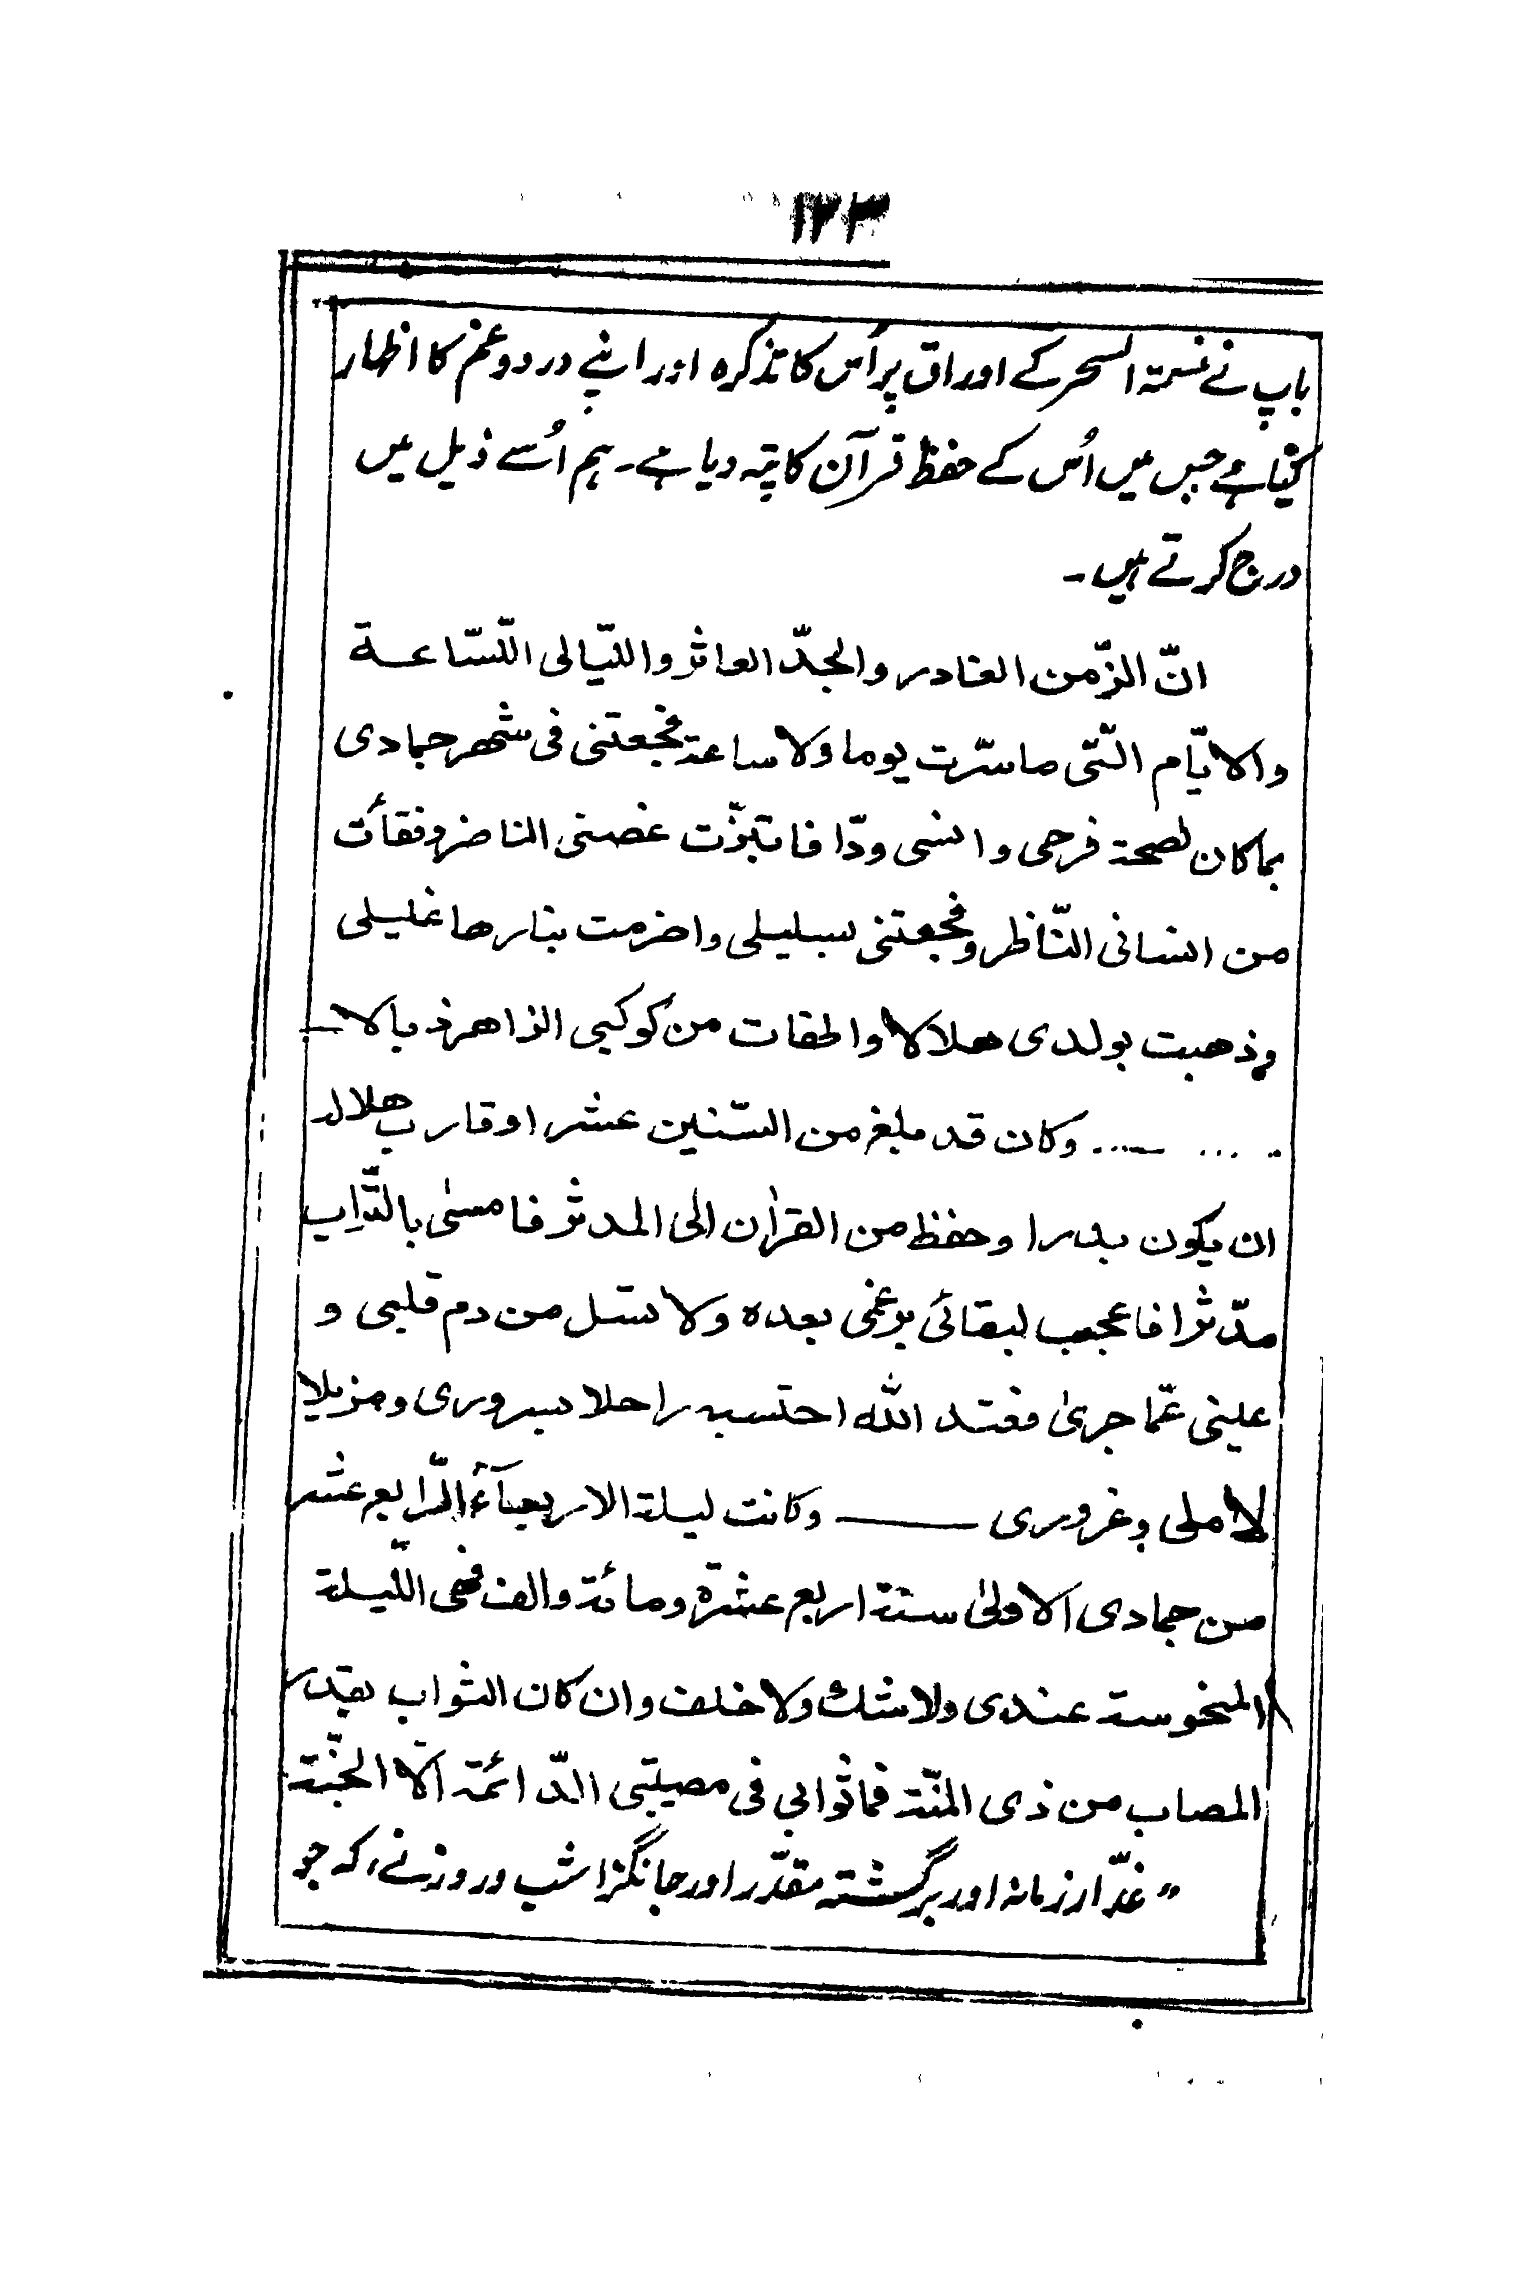 ۱۲۳
باپ نے نسمۃ السحر کے اوراق پر اُس کا تذکرہ اور اپنے درد و غم کا اظہار
کیا ہے جس میں اُس کے حفظ قرآن کا پتہ دیا ہے۔ ہم اُسے ذیل میں
درج کرتے ہیں۔
انّ الزّمن الغادر والجدّ العاثر واللّیالی اللّسّاعة
والایّام الّتی ما سرّت یوما ولا ساعة فجعتنی فی شهر جمادی
بما کان لصحة فرحی وانسی ودّا فابتزّت غصنی الناضر وفقأت
من انسانی النّاظر وفجعتنی بسلیلی واضرمت بنارها غلیلی
وذهبت بولدی هلالا والحقات من کوکبی الزاهر ذبالا
... .... وکان قد بلغ من السّنین عشر او قارب هلاله
ان یکون بدرا وحفظ من القرآن الی المدثر فامسیٰ بالتّراب
مدّثرا فاعجب لبقائی برغمی بعده ولا تسل من دم قلبی و
عینی عمّا جریٰ فعند الله احتسبه راحلا بسروری ومزیلا
لاملی وغروری ــــــ وکانت لیلة الاربعآء الرّابع عشر
من جمادی الاولیٰ سنة اربع عشرة ومائة والف فهی اللّیلة
المنحوسة عندی ولا شك ولا خلف وان کان الثواب بقدر
المصاب من ذی المنّة فما ثوابی فی مصیبتی الدّائمة الّا الجنّة
“ غدّار زمانہ اور برگشتہ مقدّر اور جانگزا شب و روز نے، کہ جو